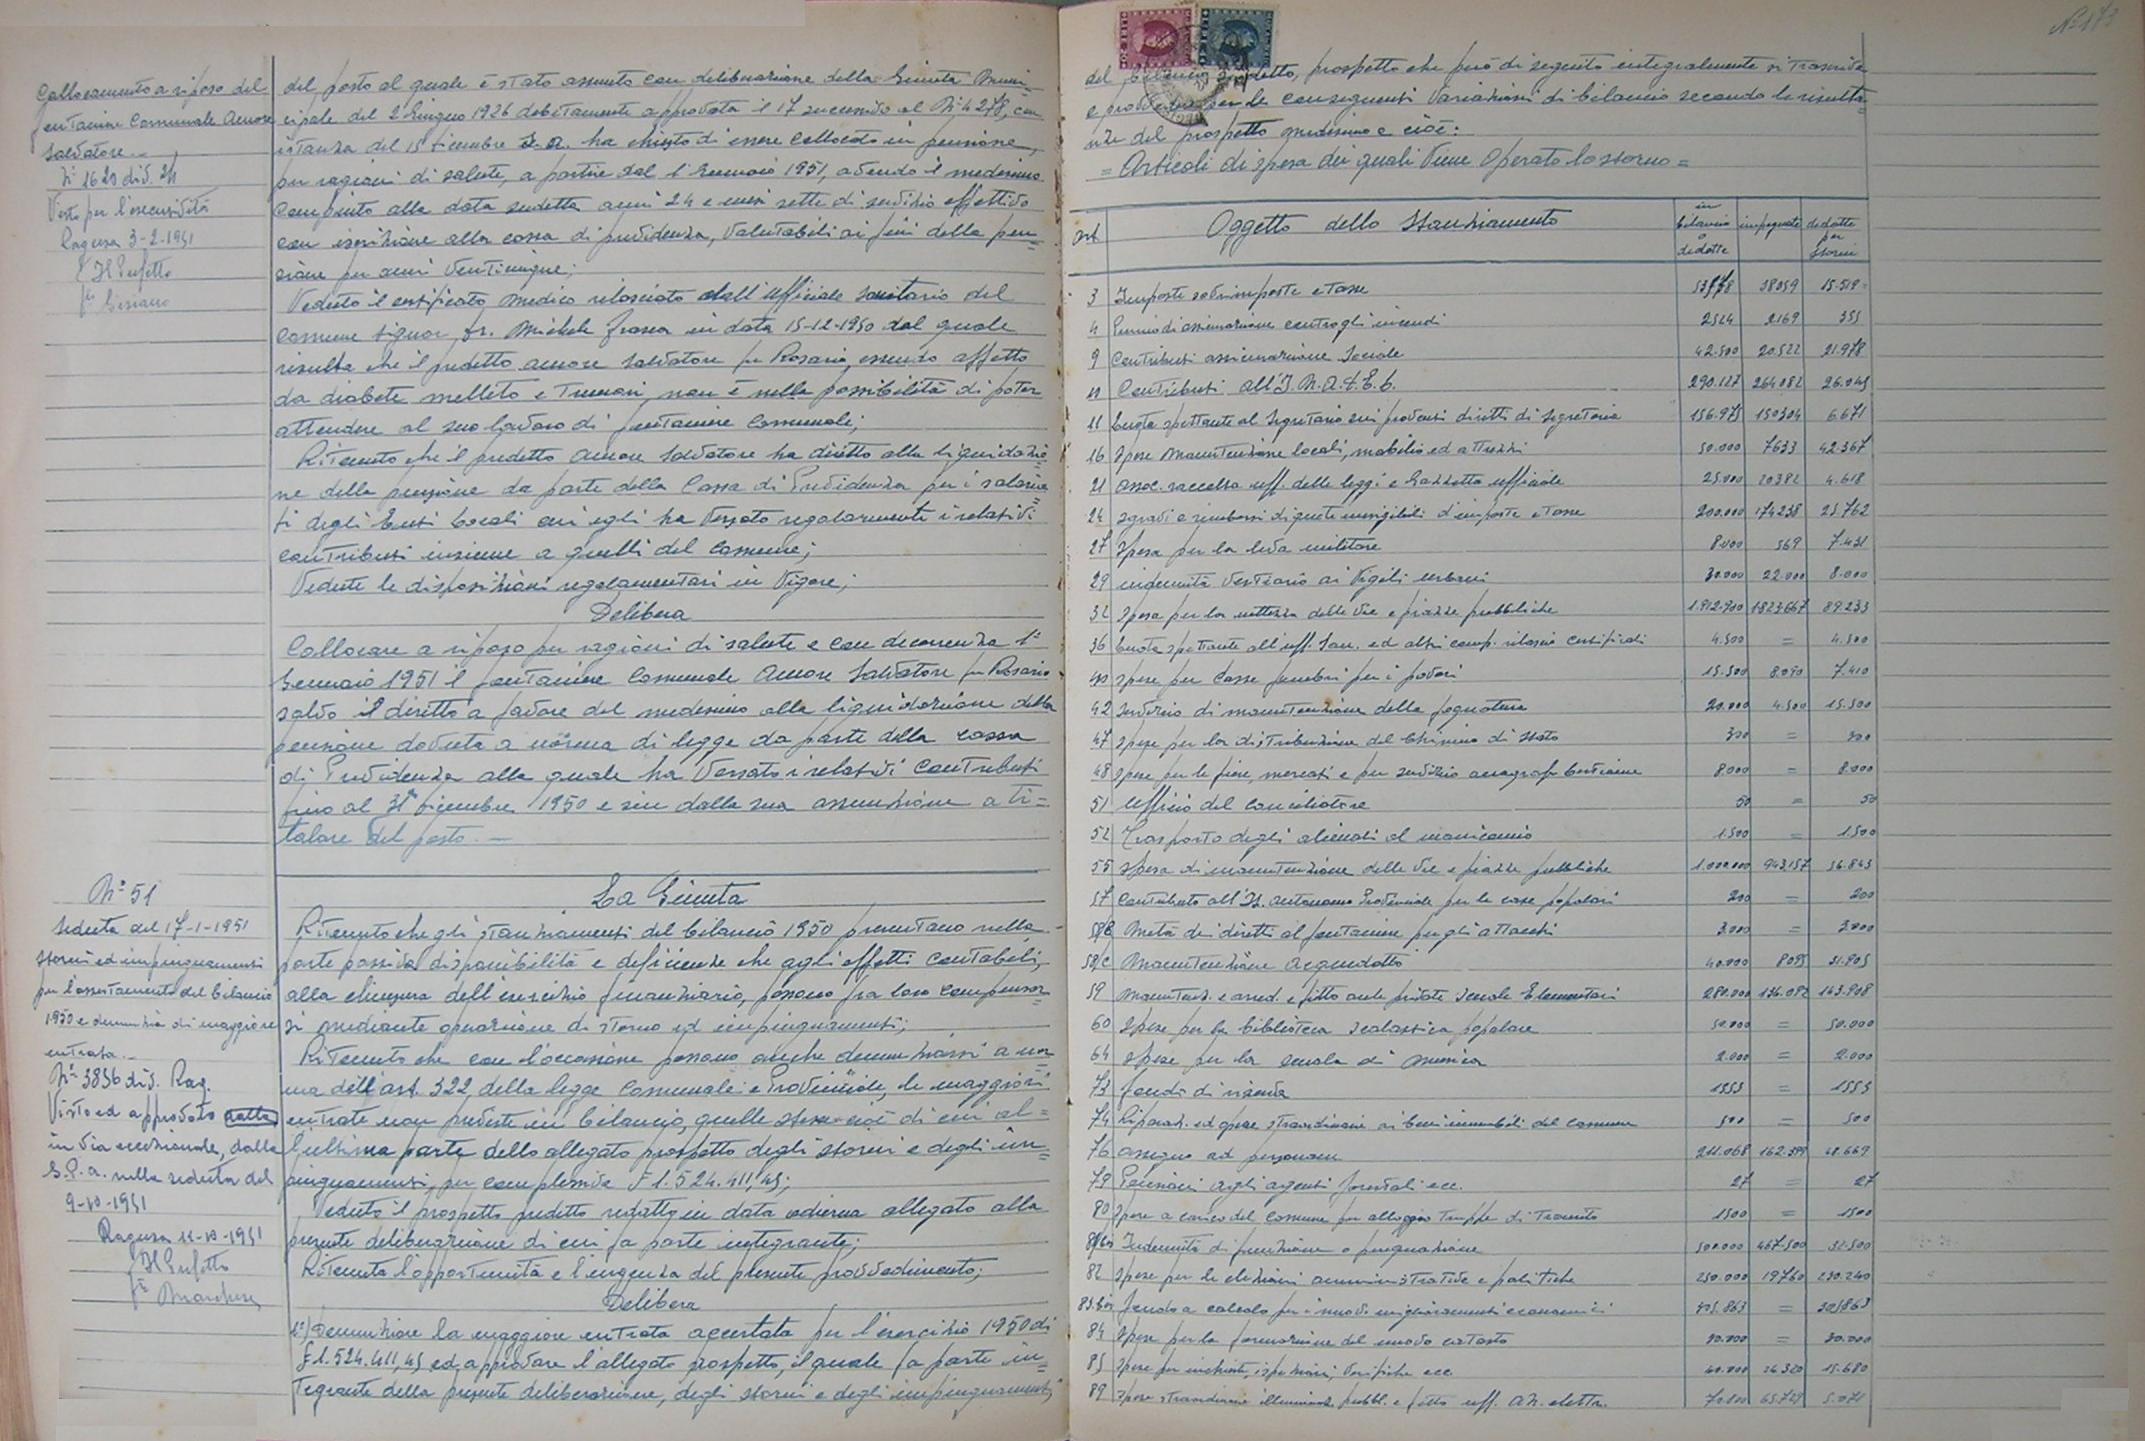 Collocamento a riposo del
fontaniere Comunale Amore
Salvatore.
N° 1620 div. 2/1
Visto per l'esecutività
Ragusa 3-2-1951
Il Prefetto
del posto al quale è stato assunto con deliberazione della Giunta Muni-
cipale del 2 Giugno 1926 debitamente approvata il 17 successivo al N° 4278, con
istanza del 15 dicembre s.a. ha chiesto di essere collocato in pensione,
per ragioni di salute, a partire dal 1° Gennaio 1951, avendo il medesimo
compiuto alla data sudetta anni 24 e mesi sette di servizio effettivo
con iscrizione alla cassa di previdenza, valutabili ai fini della pen=
sione per anni venticinque;
Veduto il certificato medico rilasciato dall'Ufficiale Sanitario del
Comune Signor Dr. Michele in data 15-12-1950 dal quale
risulta che il predetto Amore Salvatore fu Rosario, essendo affetto
da diabete melleto e tremori, non è nella possibilità di poter
attendere al suo lavoro di fontaniere Comunali;
Ritenuto che il predetto Amore Salvatore ha diritto alla liquidazio=
ne della pensione da parte della Cassa di Previdenza per i salaria=
ti degli Enti Locali cui egli ha versato regolarmente i relativi
contributi insieme a quelli del Comune;
Vedute le disposizioni regolamentari in vigore;
Delibera
Collocare a riposo per ragioni di salute e con decorrenza 1°
Gennaio 1951 il fontaniere Comunale Amore Salvatore fu Rosario
salvo il diritto a favore del medesimo alla liquidazione della
pensione dovuta a norma di legge da parte della cassa
di Previdenza alla quale ha versato i relativi contributi
fino al 31 dicembre 1950 e sin dalla sua assunzione a ti=
tolare del posto.
N° 51
Seduta del 17-1-1951
Storni ed impinguamenti
per l'assestamento del bilancio
1950 e denunzia di maggiore
entrata.
N° 3836 div. Rag.
Visto ed approvato
in via eccezionale, dalla
G.P.A. nella seduta del
9-10-1951
Ragusa 12-10-1951
Il Prefetto
La Giunta
Ritenuto che gli stanziamenti del bilancio 1950 presentano nella
parte passiva disponibilità e deficienze che agli effetti contabili,
alla chiusura dell'esercizio finanziario, possono fra loro compensar=
si mediante operazione di storno ed impinguamenti;
Ritenuto che con l'occasione possono anche denunziarsi a nor
ma dell'art. 322 della legge Comunale e Provinciale, le maggiori
entrate non previste in bilancio, quelle stesse cioè di cui al=
l'ultima parte dello allegato prospetto degli storni e degli im=
pinguamenti, per complessive £ 1.524.411,45;
Veduto il prospetto predetto redatto in data odierna allegato alla
presente deliberazione di cui fa parte integrante;
Ritenuta l'opportunità e l'urgenza del presente provvedimento;
Delibera
1°) Denunziare la maggiore entrata accertata per l'esercizio 1950 di
£ 1.524.411,45 ed approvare l'allegato prospetto, il quale fa parte in=
tegrante della presente deliberazione, degli storni e degli impinguamenti
N° 173
del bilancio predetto, prospetto che però di seguito integralmente si trascrive
e provvedere per le conseguenti variazioni di bilancio secondo le risulta=
nze del prospetto medesimo e cioè:
= Articoli di spesa dei quali viene operato lo storno =
Art. Oggetto dello Stanziamento in bilancio o dedotte impegnate dedotte per storni
3 Imposte sovrimposte e tasse 53578 38059 15.519=
4 Premio di assicurazione contro gli incendi 2524 2169 355
9 Contributi assicurazione Sociale 42.500 20.522 21.978
10 Contributi all'I.N.A.D.E.L. 290.127 264.082 26.045
11 Quota spettante al Segretario sui proventi diritti di segreteria 156.975 150304 6.671
16 Spese manutenzione locali, mobilio ed attrezzi 50.000 7633 42.367
21 Assoc. raccolta uff. delle leggi e Gazzetta ufficiale 25.000 20382 4.618
24 Sgravi e rimborsi di quote inesigibili d'imposte e tasse 200.000 174238 25.762
27 Spesa per la leva militare 8.000 569 7.431
29 Indennità vestiario ai Vigili urbani 30.000 22.000 8.000
32 Spesa per la nettezza delle vie e piazze pubbliche 1.912.900 1823.667 89.233
36 Quota spettante all'uff. San. ed altri comp. rilascio certificati 4.500 = 4.500
40 Spese per Casse funebri per i poveri 15.500 8.090 7.410
42 Servizio di manutenzione delle fognature 20.000 4.500 15.500
47 Spese per la distribuzione del Chinino di Stato 300 = 300
48 Spese per le fiere, mercati e per servizio anagrafe bestiame 8.000 = 8.000
51 Ufficio del conciliatore 50 = 50
52 Trasporto degli alienati al manicomio 1.500 = 1.500
55 Spesa di manutenzione delle vie e piazze pubbliche 1.000.000 943.157 56.843
57 Contributo all'Ist. autonomo Provinciale per le case popolari 200 = 200
58/B Metà dei diritti al fontaniere per gli attacchi 3.000 = 3.000
58/C Manutenzione acquedotto 40.000 8095 31.905
59 Manutenz. e arred. e fitto aule private Scuole Elementari 280.000 136.092 143.908
60 Spese per la biblioteca scolastica popolare 50.000 = 50.000
64 Spese per la scuola di musica 2.000 = 2.000
73 Fondo di riserva 1553 = 1553
74 Riparaz. ed opere straordinarie ai beni immobili del Comune 500 = 500
76 Assegno ad personam 211.068 162.399 48.669
79 Pensioni agli agenti forestali ecc. 27 = 27
80 Spese a carico del Comune per alloggio truppe di transito 1500 = 1500
81/bis Indennità di funzione o perequazione 500.000 467.500 32.500
82 Spese per le elezioni amministrative e politiche 250.000 19760 230.240
83.bis Fondo a calcolo per i nuovi miglioramenti economici 205.863 = 205863
84 Spese per la formazione del nuovo catasto 30.000 = 30.000
85 Spese per inchieste, ispezioni, verifiche ecc. 40.000 24320 15.680
89 Spese straordinarie illuminaz. pubbl. e fitto uff. az. elettr. 70.800 65729 5.071